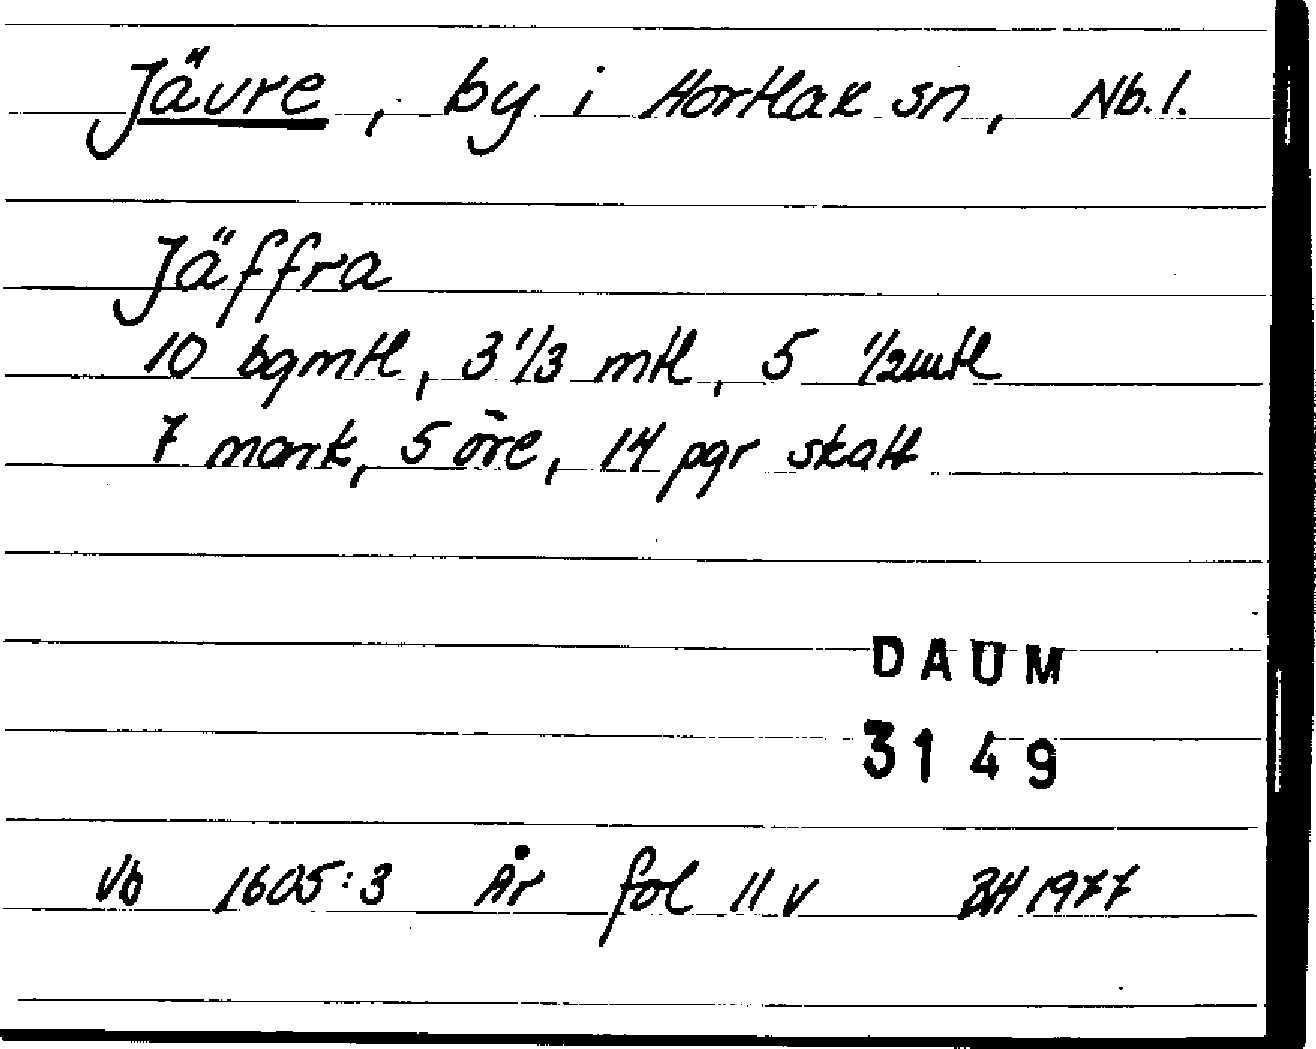 Jävre, by i Hortlax sn, Nb.l.
Jäffra
10 bqmtl, 3 1/3 mtl, 5 1/2mtl
7 mark, 5 öre, 14 pgr skatt
DAUM
3149
Vb 1605:3 År fol 11 v BH 1977